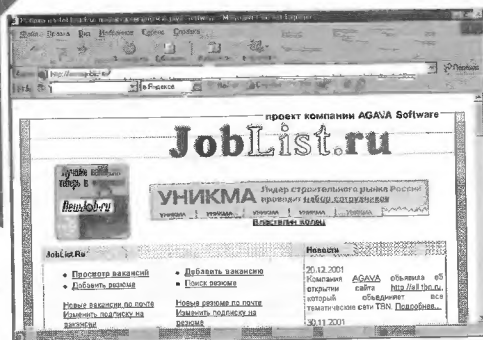 Microsoft Internet Explorer
Файл Правка Вид Избранное Сервис Справка
Переход
в Яндексе
проект компании AGAVA Software
JobList.ru
Лучшие
теперь в
УНИКМА Лидер строительного рынка России
проводит набор сотрудников
УНИКМА УНИКМА УНИКМА УНИКМА
Властелин колец
JobList.Ru
Новости
Просмотр вакансий
Добавить резюме
Добавить вакансию
Поиск резюме
Новые вакансии по почте
Изменить подписку на
вакансии
Новые резюме по почте
Изменить подписку на
резюме
20.12.2001
Компания AGAVA объявила об
открытии сайта http://all.tbn.ru,
который объединяет все
тематические сети TBN. Подробнее...
30.11.2001